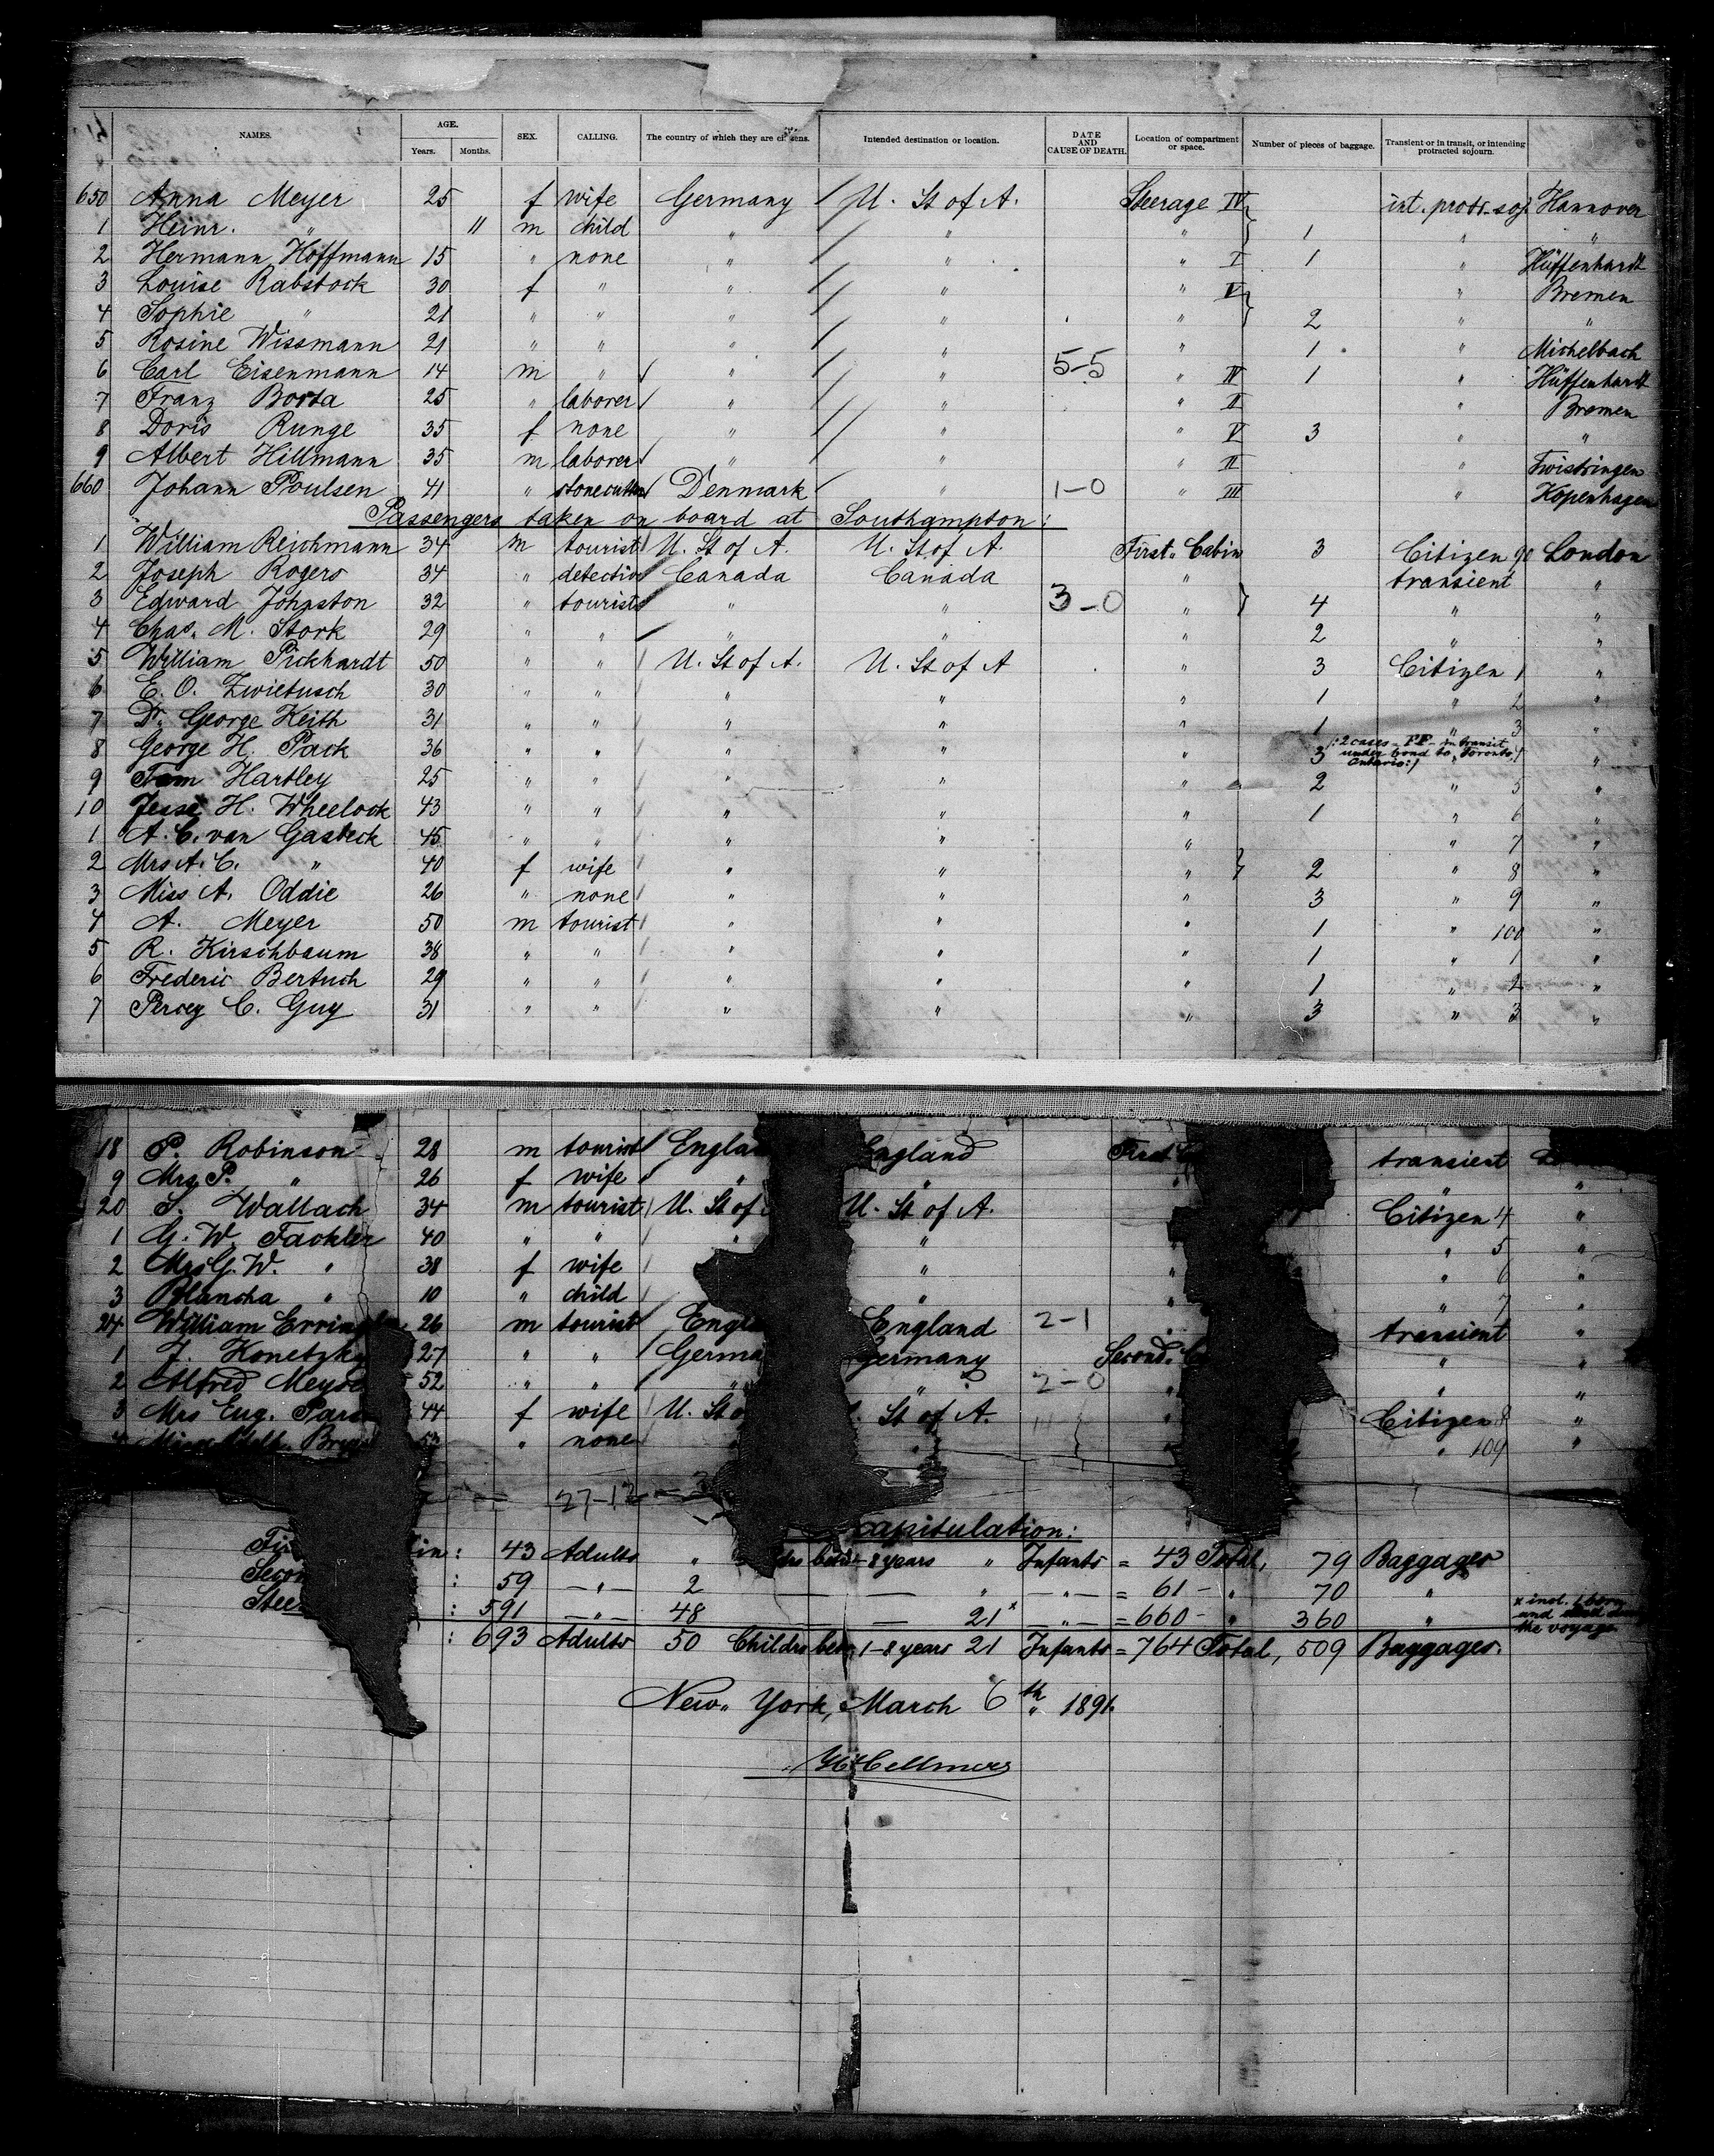 NAMES. AGE. Years. Months. SEX. CALLING. The country of which they are citizens. Intended destination or location. DATE AND CAUSE OF DEATH. Location of compartment or space. Number of pieces of baggage. Transient or in transit, or intending protracted sojourn.
650 Anna Meyer 25 f wife Germany U. St of A. Steerage IV int. protr. soj. Hannover
1 Heinr. " 11 m child " " " 1 " "
2 Hermann Hoffmann 15 " none " " " I 1 " Hüffenhardt
3 Louise Rabstock 30 f " " " " V " Bremen
4 Sophie " 21 " " " " " 2 " "
5 Rosine Wissmann 21 " " " " " 1 " Michelbach
6 Carl Eisenmann 14 m " " " 5-5 " IV 1 " Hüffenhardt
7 Franz Borta 25 " laborer " " " II " Bremen
8 Doris Runge 35 f none " " " V 3 " "
9 Albert Hillmann 35 m laborer " " " II " Twistringen
660 Johann Poulsen 41 " stonecutter Denmark " 1-0 " III " Kopenhagen
Passengers taken on board at Southampton:
1 William Reichmann 34 m tourist U. St of A. U. St of A. First. Cabin 3 Citizen 90 London
2 Joseph Rogers 34 " detective Canada Canada " transient "
3 Edward Johnston 32 " tourist " " 3-0 " 4 " "
4 Chas. M. Stork 29 " " " " " 2 " "
5 William Pickhardt 50 " " U. St of A. U. St of A " 3 Citizen 1 "
6 E. O. Zwietusch 30 " " " " " 1 " 2 "
7 Dr. George Keith 31 " " " " " 1 " 3 "
8 George H. Pack 36 " " " " " 3 /:2 cases - PP - in transit under bond to Toronto, Ontario:/ " "
9 Tom Hartley 25 " " " " " 2 " 5 "
10 Jesse H. Wheelock 43 " " " " " 1 " 6 "
1 A. C. van Gasbeck 45 " " " " " " 7 "
2 Mrs A. C. " 40 f wife " " " 2 " 8 "
3 Miss A. Oddie 26 " none " " " 3 " 9 "
4 A. Meyer 50 m tourist " " " 1 " 100 "
5 R. Kirschbaum 38 " " " " " 1 " 1 "
6 Frederic Bertuch 29 " " " " " 1 " 2 "
7 Percy C. Guy 31 " " " " " 3 " 3 "
18 P. Robinson 28 m tourist England First transient
9 Mrs P. " 26 f wife " " " " "
20 S. Wallach 34 m tourist U. St of U. St of A. Citizen 4 "
1 G. W. Fackler 40 " " " " " " 5 "
2 Mrs G. W. " 38 f wife " " " 6 "
3 Blancha " 10 " child " " " 7 "
24 William 26 m tourist England 2-1 " transient "
1 J. Konetzky 27 " " Germany Second. " "
2 Alfred 52 " " " " 2-0 " " "
3 Mrs Eug. 44 f wife U. St of A. " Citizen 8 "
4 Miss 53 " none " " " " 109 "
27-12
capitulation:
: 43 Adults " 8 years " Infants = 43 Total, 79 Baggages
: 59 —"— 2 — — " —"— = 61 - " 70 "
: 591 —"— 48 — — 21 x —"— = 660 - " 360 " x incl. 1 born and died the voyage.
: 693 Adults 50 Childrn betw. 1-8 years 21 Infants = 764 Total, 509 Baggages.
New York, March 6th 1891.